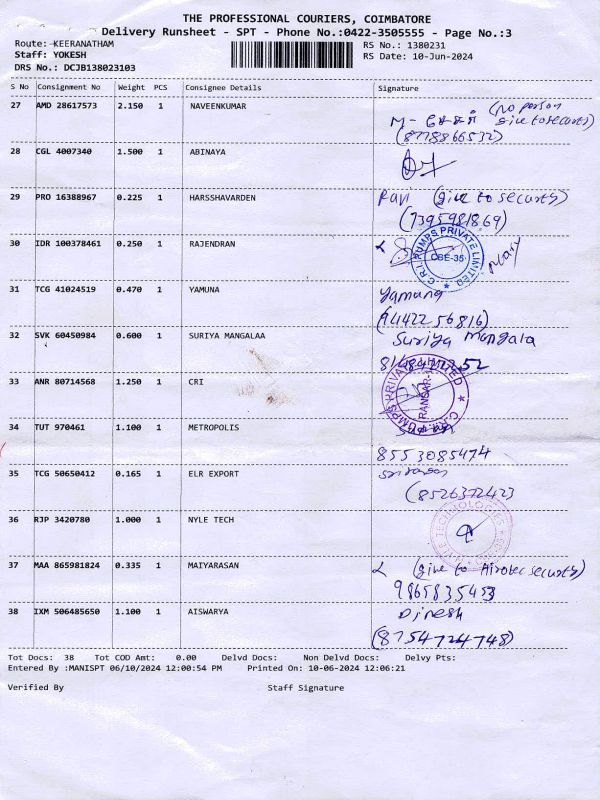 THE PROFESSIONAL COURIERS, COIMBATORE
Delivery Runsheet - SPT - Phone No.:0422-3505555 - Page No.:3
Route: KEERANATHAM
RS No.: 1380231
Staff: YOKESH
RS Date: 10-Jun-2024
DRS No.: DCJB138023103
S No Consignment No Weight PCS Consignee Details Signature
27 AMD 28617573 2.150 1 NAVEENKUMAR
(no person
give to security)
(8778866532)
28 CGL 4007340 1.500 1 ABINAYA
29 PRO 16388967 0.225 1 HARSSHAVARDEN Ravi (give to security)
(7395981869)
30 IDR 100378461 0.250 1 RAJENDRAN
C.R.I. PUMPS PRIVATE LIMITED
CBE-35
31 TCG 41024519 0.470 1 YAMUNA Yamuna
(9442256816)
32 SVK 60450984 0.600 1 SURIYA MANGALAA Suriya Mangala
33 ANR 80714568 1.250 1 CRI
C.R.I. PUMPS PRIVATE LIMITED
34 TUT 970461 1.100 1 METROPOLIS
8553085474
35 TCG 50650412 0.165 1 ELR EXPORT
(8526372423
36 RJP 3420780 1.000 1 NYLE TECH
NYLE TECHNOLOGIES
37 MAA 865981824 0.335 1 MAIYARASAN (give to Airotec security)
9865835453
38 IXM 506485650 1.100 1 AISWARYA Dinesh
(8754724748)
Tot Docs: 38 Tot COD Amt: 0.00 Delvd Docs: Non Delvd Docs: Delvy Pts:
Entered By :MANISPT 06/10/2024 12:00:54 PM Printed On: 10-06-2024 12:06:21
Verified By Staff Signature